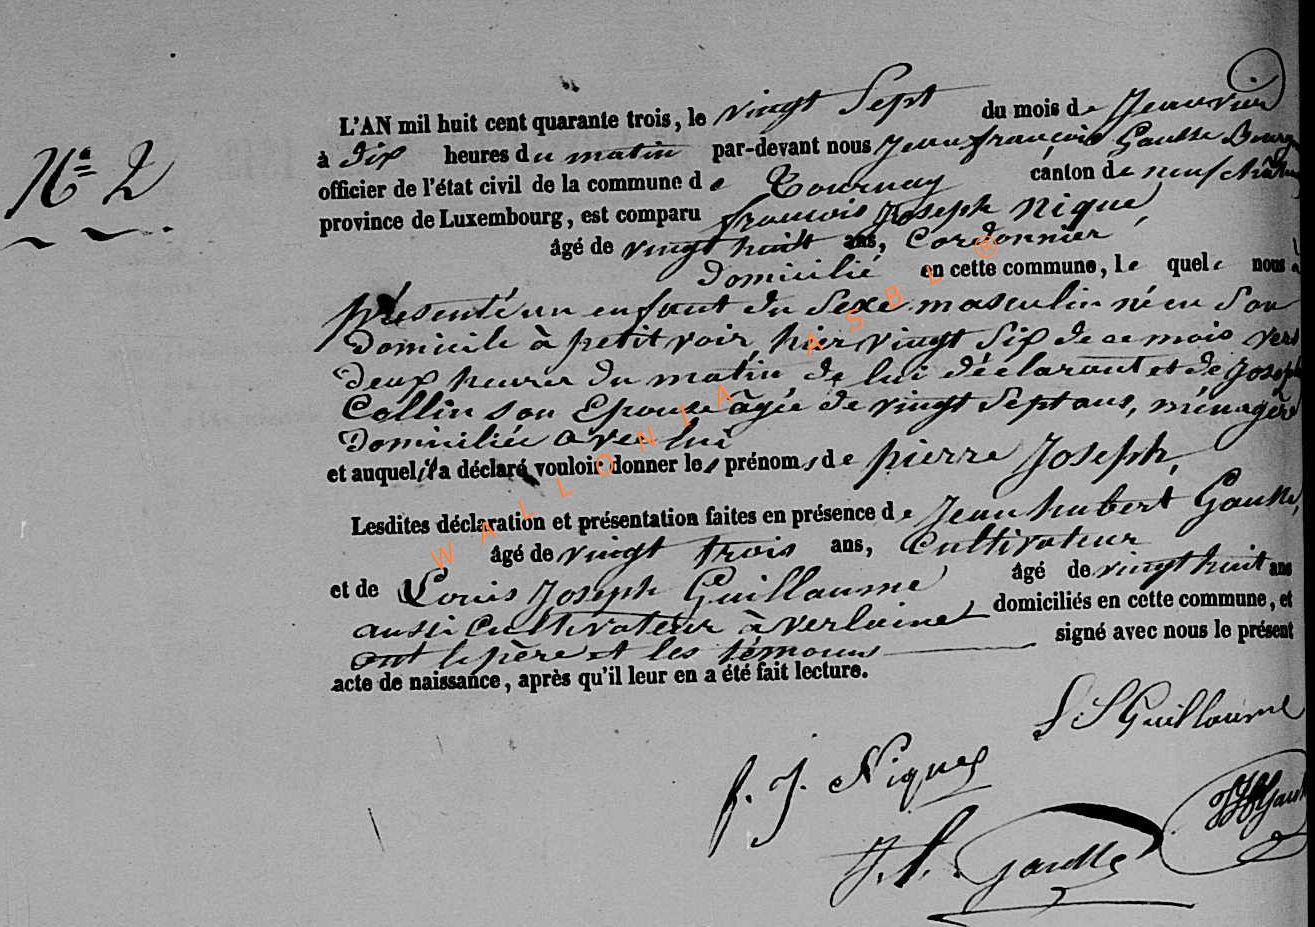 N° 2
L'AN mil huit cent quarante trois, le vingt Sept du mois de Jeanvier
à dix heures du matin par-devant nous Jean françois Gaulle Bourg
officier de l'état civil de la commune de Tournay canton de neufchâteau
province de Luxembourg, est comparu francois Joseph Nique,
âgé de vingt huit ans, Cordonnier
domicilié en cette commune, le quel nous à
présenté un enfant du Sexe masculin né en Son
domicile à petit voir, hier vingt Six de ce mois vers
deux heures du matin de lui déclarant et de Joseph
Collin Son Epouse âgée de vingt Sept ans, ménagère
domiciliée avec lui
et auquel il a déclaré vouloir donner les prénoms de pierre Joseph,
Lesdites déclaration et présentation faites en présence de Jean hubert Gaulle,
âgé de vingt trois ans, Cultivateur
et de Louis Joseph Guillaume âgé de vingt huit ans
aussi Cultivateur à verlaine domiciliés en cette commune, et
ont le père et les témoins signé avec nous le présent
acte de naissance, après qu'il leur en a été fait lecture.
L J Guillaume
f. J. Nique
J. f. Gaulle
WALLONIA ASBL ®